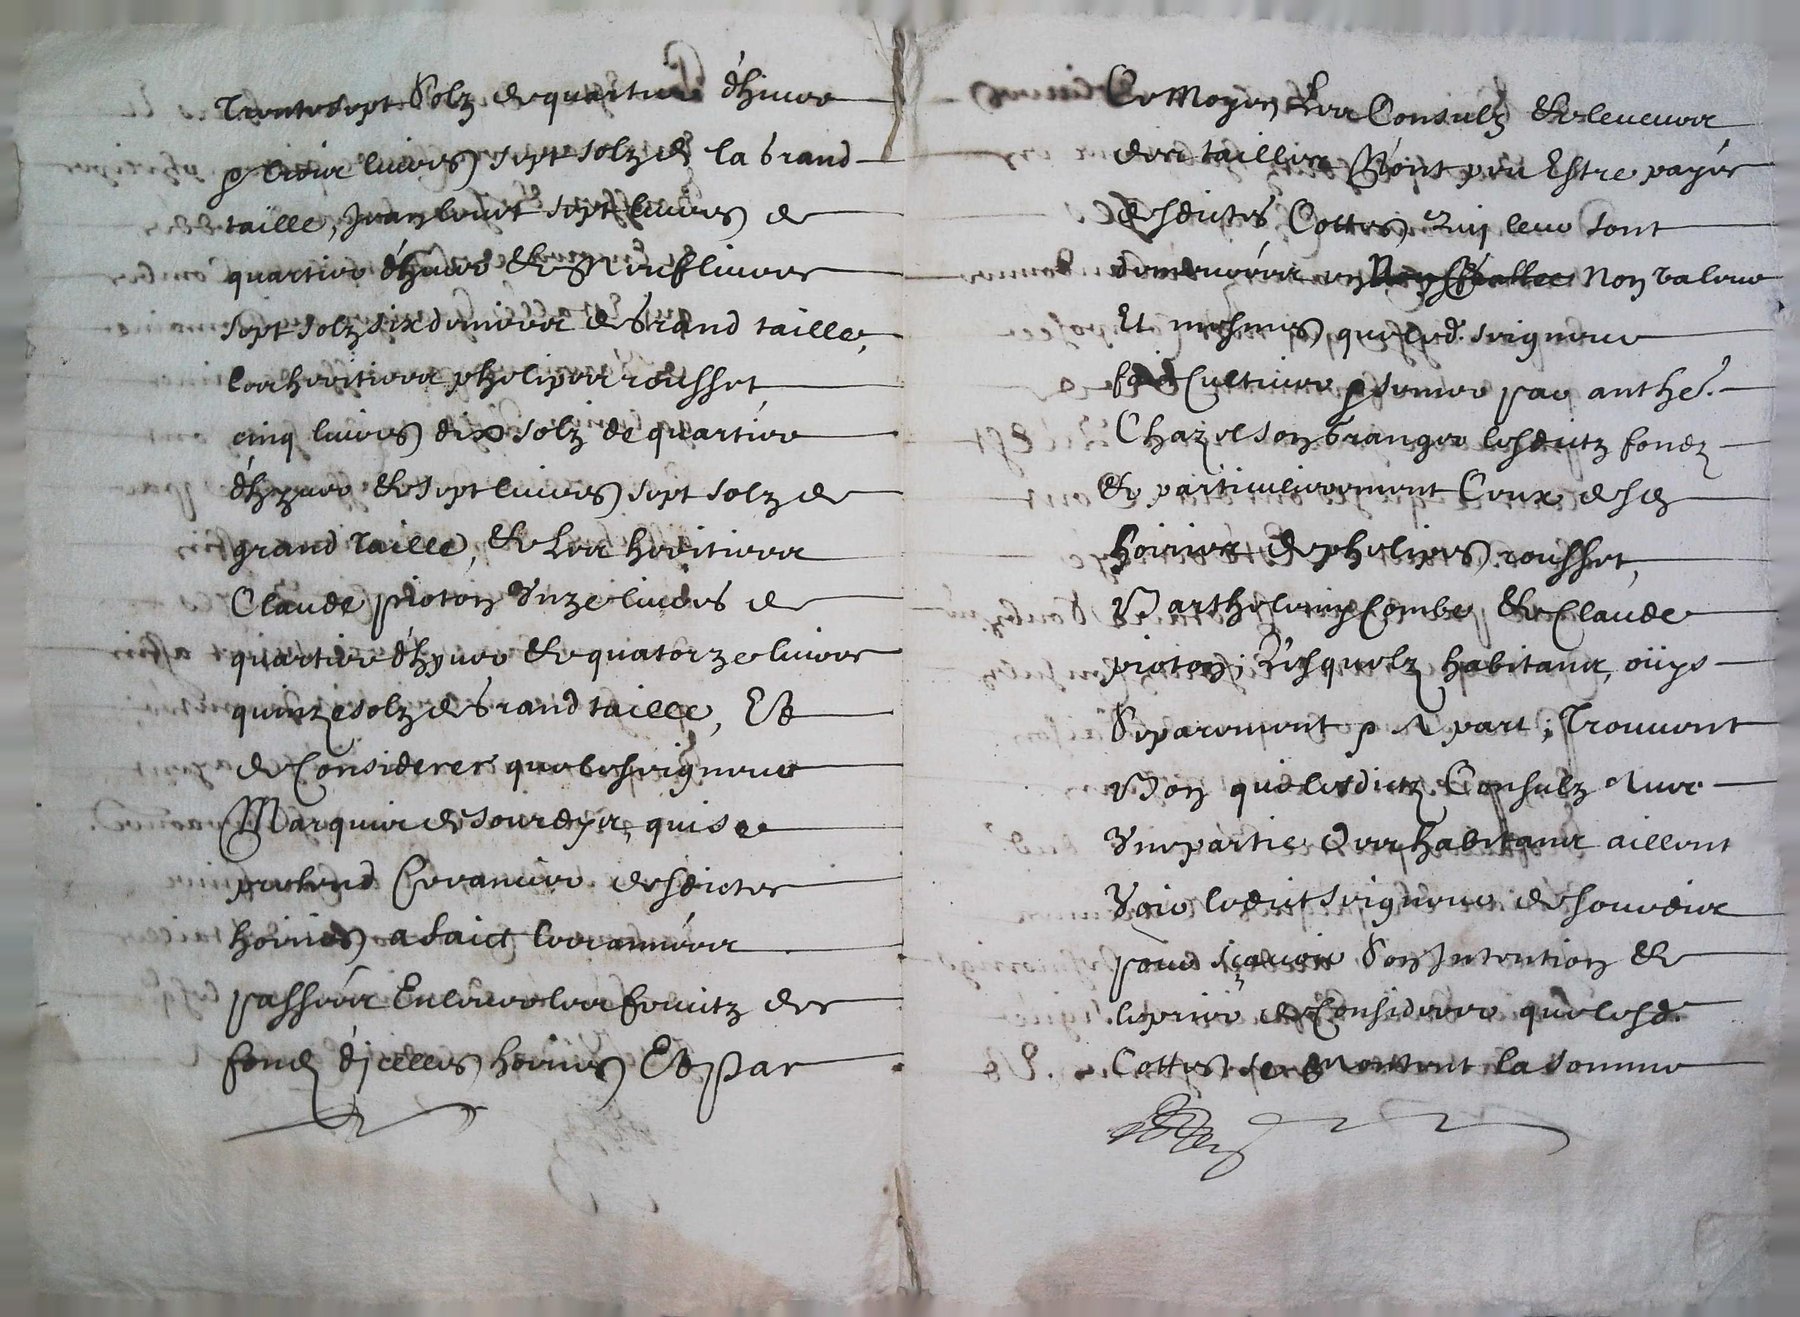 Trente sept solz de quartier d'hiver
& dix livres sept solz de la grand
taille, Jean louet sept livres de
quartier d'hyver & de neuf livres
sept solz six deniers de grand taille,
les heoitiers phelipes rousset
cinq livres dix solz de quartier
d'hyver & sept livres sept solz de
grand taille, & les heritiers
Claude pioton unze livres de
quartier d'hyver & quatorze livres
quinze solz de grand taille, Et
de Considerer que le seigneur
Marquis de sourdis, qui se
pretend Creancier desdictes
hoiries a faict les années
passées Enlever les fruitz des
fondz d'jcelles hoiries Et par
Ce moyen Les Consulz & leveurs
des tailles N'ont peu Estre payés
desdictes Cottes quj leur sont
demeurées en Non valeur
Et mesmes que led. seigneur
faict Cultiver & semer par anthe.
Chaze son granger lesdictz fondz
& particulierement Ceux desd
hoiries de phelipes rousset,
Barthelemy Combe & Claude
pioton; Lesquelz habitans, oüys
separement & A part; Treuvent
Bon que lesdictz Consulz Avec
Une partie des habitans aillent
Voir ledict seigneur de sourdis
pour sçavoir son Jntention &
le prier de Considerer que lesd.
Cottes se montent la somme